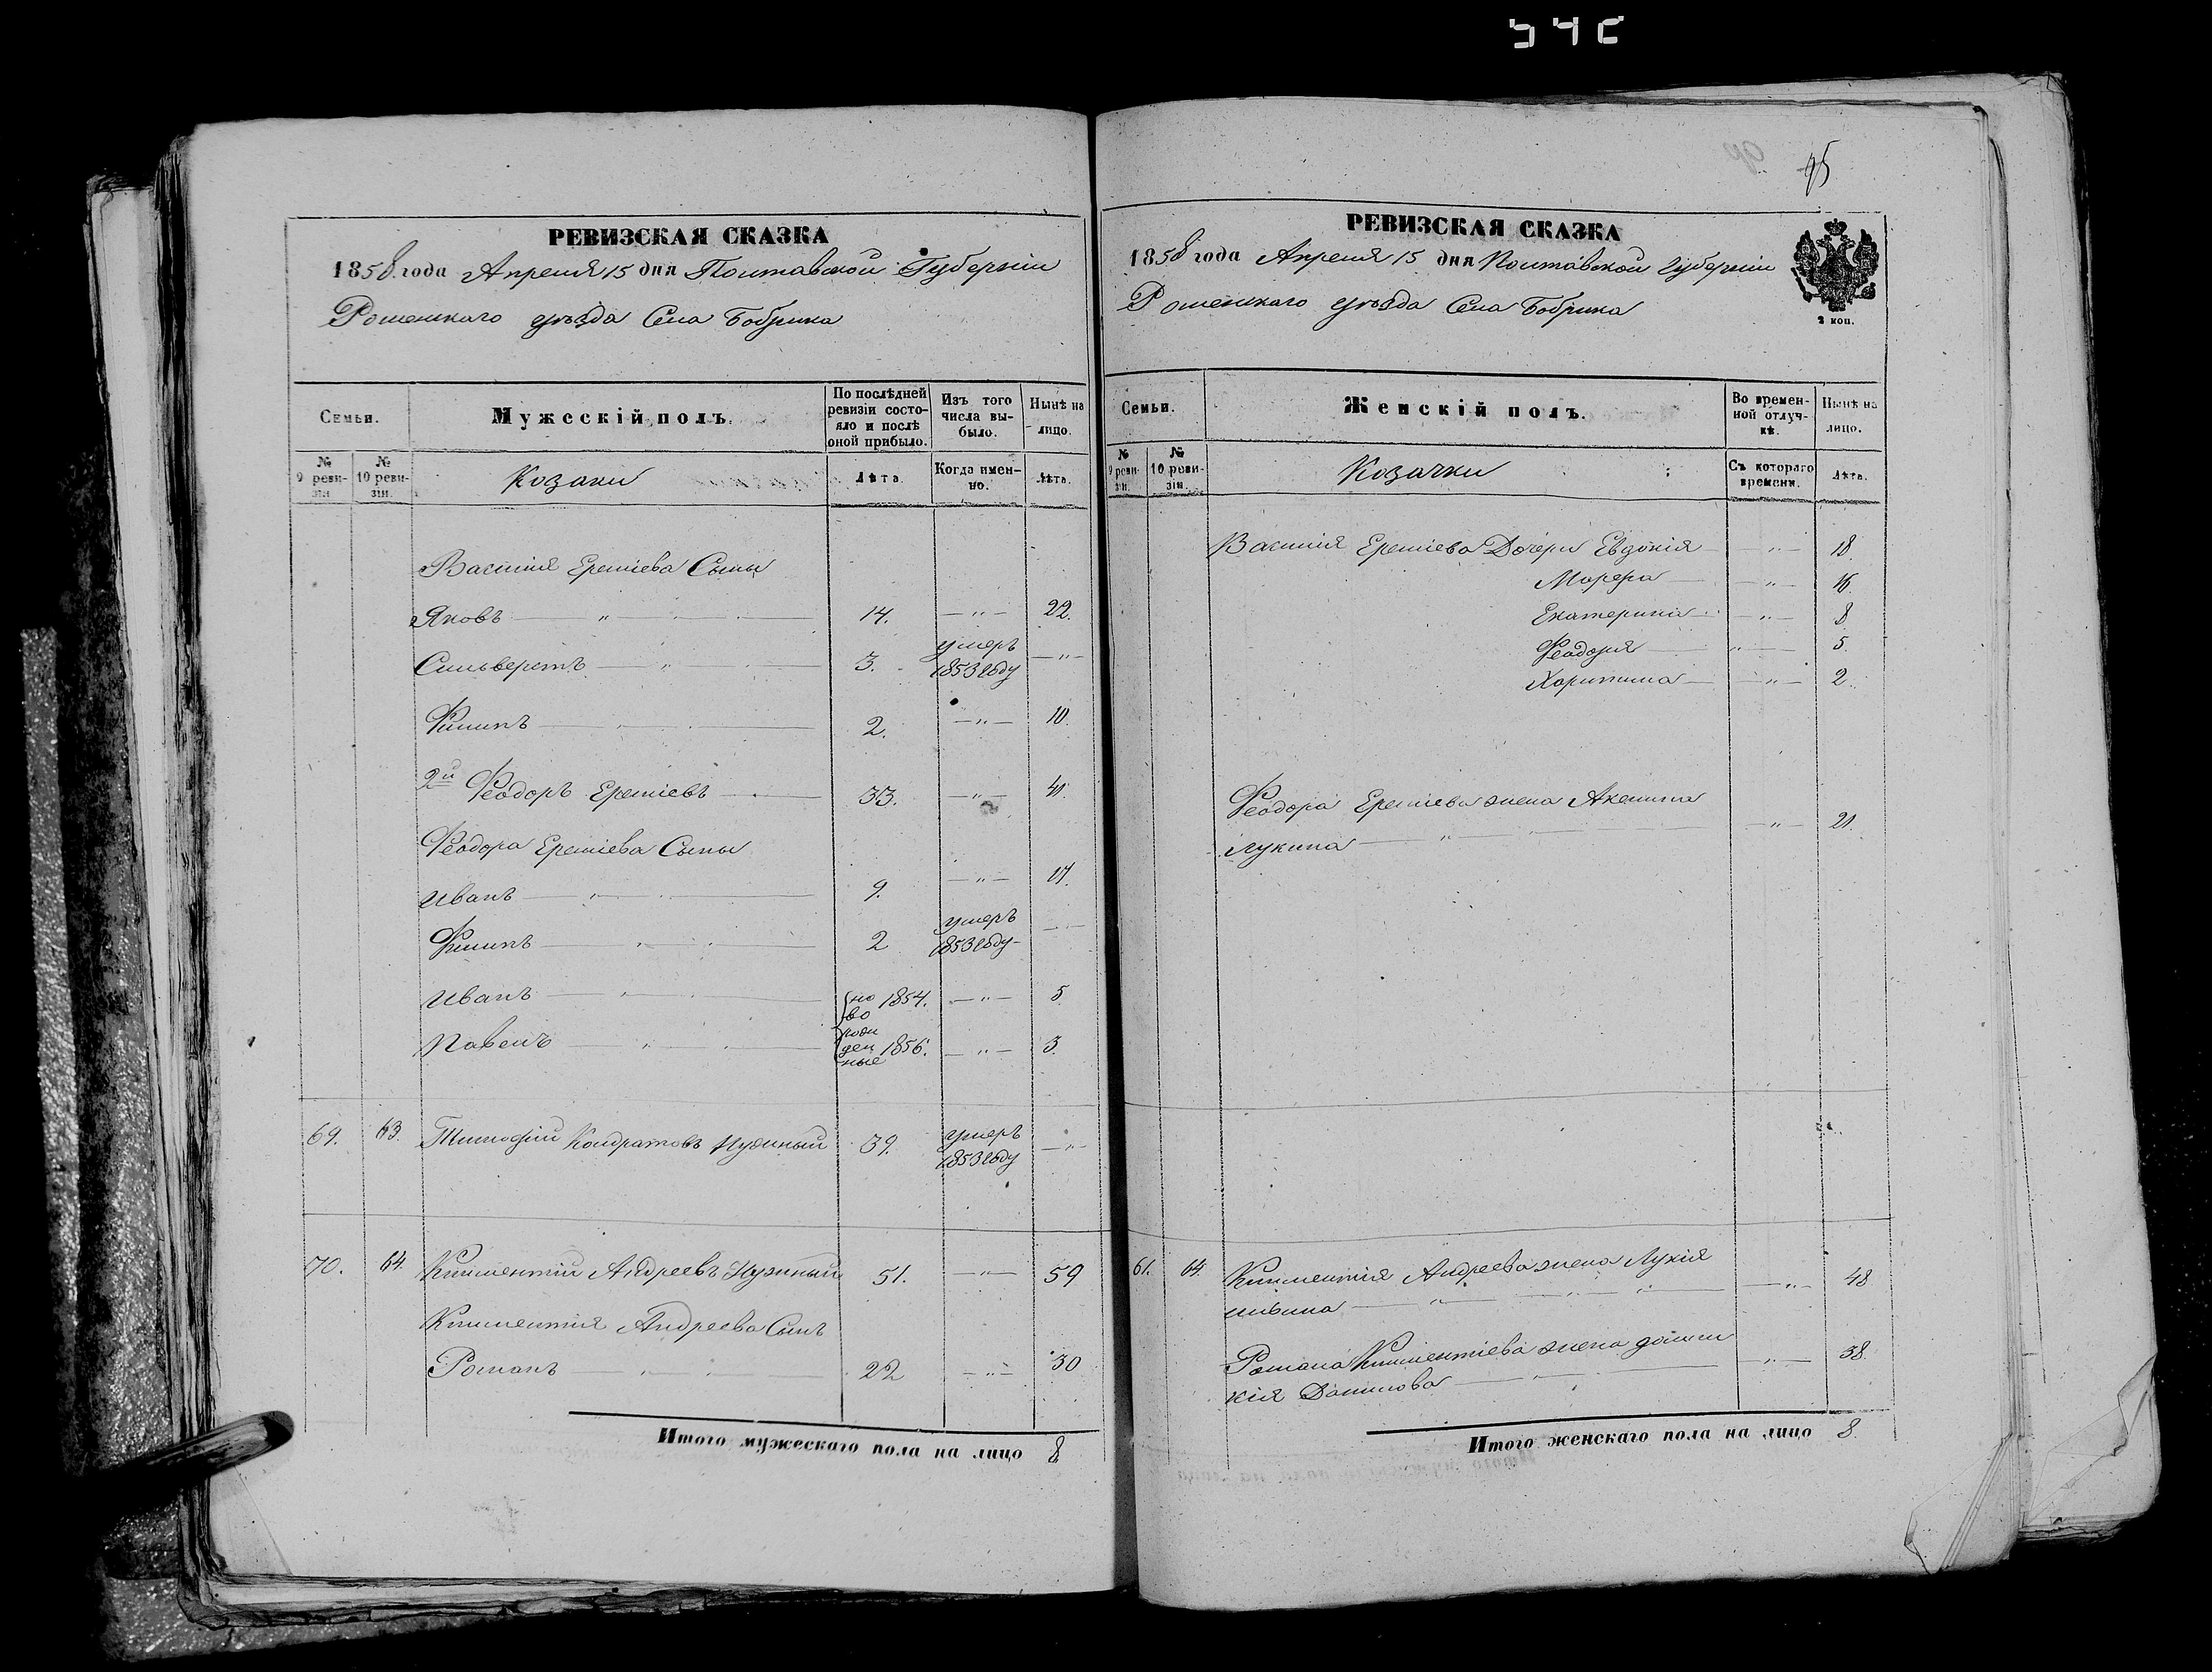 95
РЕВИЗСКАЯ СКАЗКА
1858 года Апреля 15 дня Полтавской Губерніи
Роменскаго уѣзда Села Бобрика
Семьи.
Мужескій полъ.
По послѣдней ревизіи состояло и послѣ оной прибыло.
Изъ того числа выбыло.
Нынѣ на лицо.
№ 9 ревизіи.
№ 10 ревизіи.
Козаки
Лѣта.
Когда именно.
Лѣта.
Василія Ереміева Сыны
Яковъ 14. 22.
Сильверстъ 3. умеръ 1853 году
Филипъ 2. 10.
2й Феодоръ Ереміевъ 33. 41.
Феодора Ереміева Сыны
Иванъ 9. 17.
Филипъ 2 умеръ 1853 году
Иванъ 1854. 5.
Павелъ 1856. 3.
новорожденные
69. 63. Тимофій Кондратовъ Нужный 39. умеръ 1853 году
70. 64. Климентій Андреевъ Нужный 51. 59
Климентія Андреева Сынъ
Романъ 22 30
Итого мужескаго пола на лицо 8
РЕВИЗСКАЯ СКАЗКА
1858 года Апреля 15 дня Полтавской Губерніи
Роменскаго уѣзда Села Бобрика
2 коп.
Семьи.
Женскій полъ.
Во временной отлучкѣ.
Нынѣ на лицо.
№ 9 ревизіи.
№ 10 ревизіи.
Козачки
Съ котораго времени.
Лѣта.
Василія Ереміева Дочери Евдокія 18
Марфа 16
Екатерина 8
Феодора 5
Харитина 2
Феодора Ереміева жена Акилина
Лукина 21.
61. 64. Климентія Андреева жена Лукія
48
Романа Климентіева жена
Данилова 38.
Итого женскаго пола на лицо 8